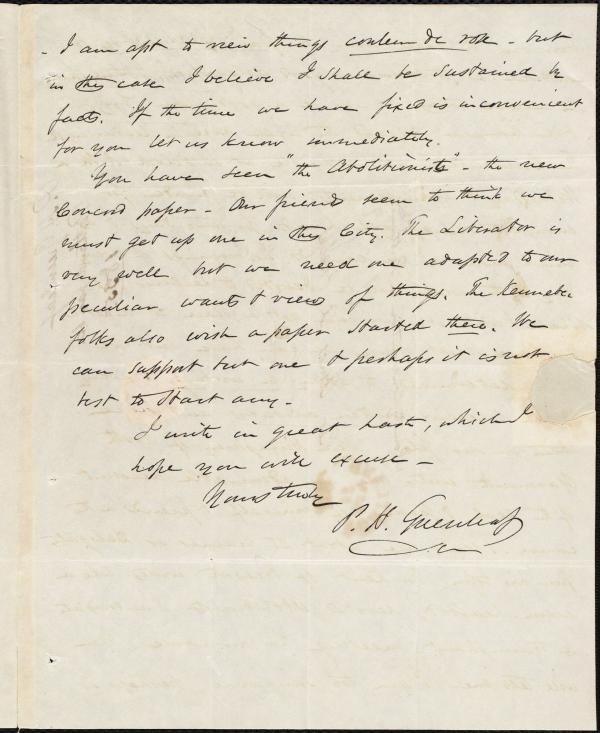 - I am apt to view things couleur de rose - but
in this case I believe I shall be sustained by
facts. If the time we have fixed is inconvenient
for you let us know immediately.
You have seen "the Abolitionist" - the new
Concord paper - Our friends seem to think we
must get up one in this City. The Liberator is
very well but we need one adapted to our
peculiar wants & views of things. The Kennebec
folks also wish a paper started there. We
can support but one & perhaps it is not
best to start any -
I write in great haste, which I
hope you will excuse -
Yours truly
P. H. Greenleaf